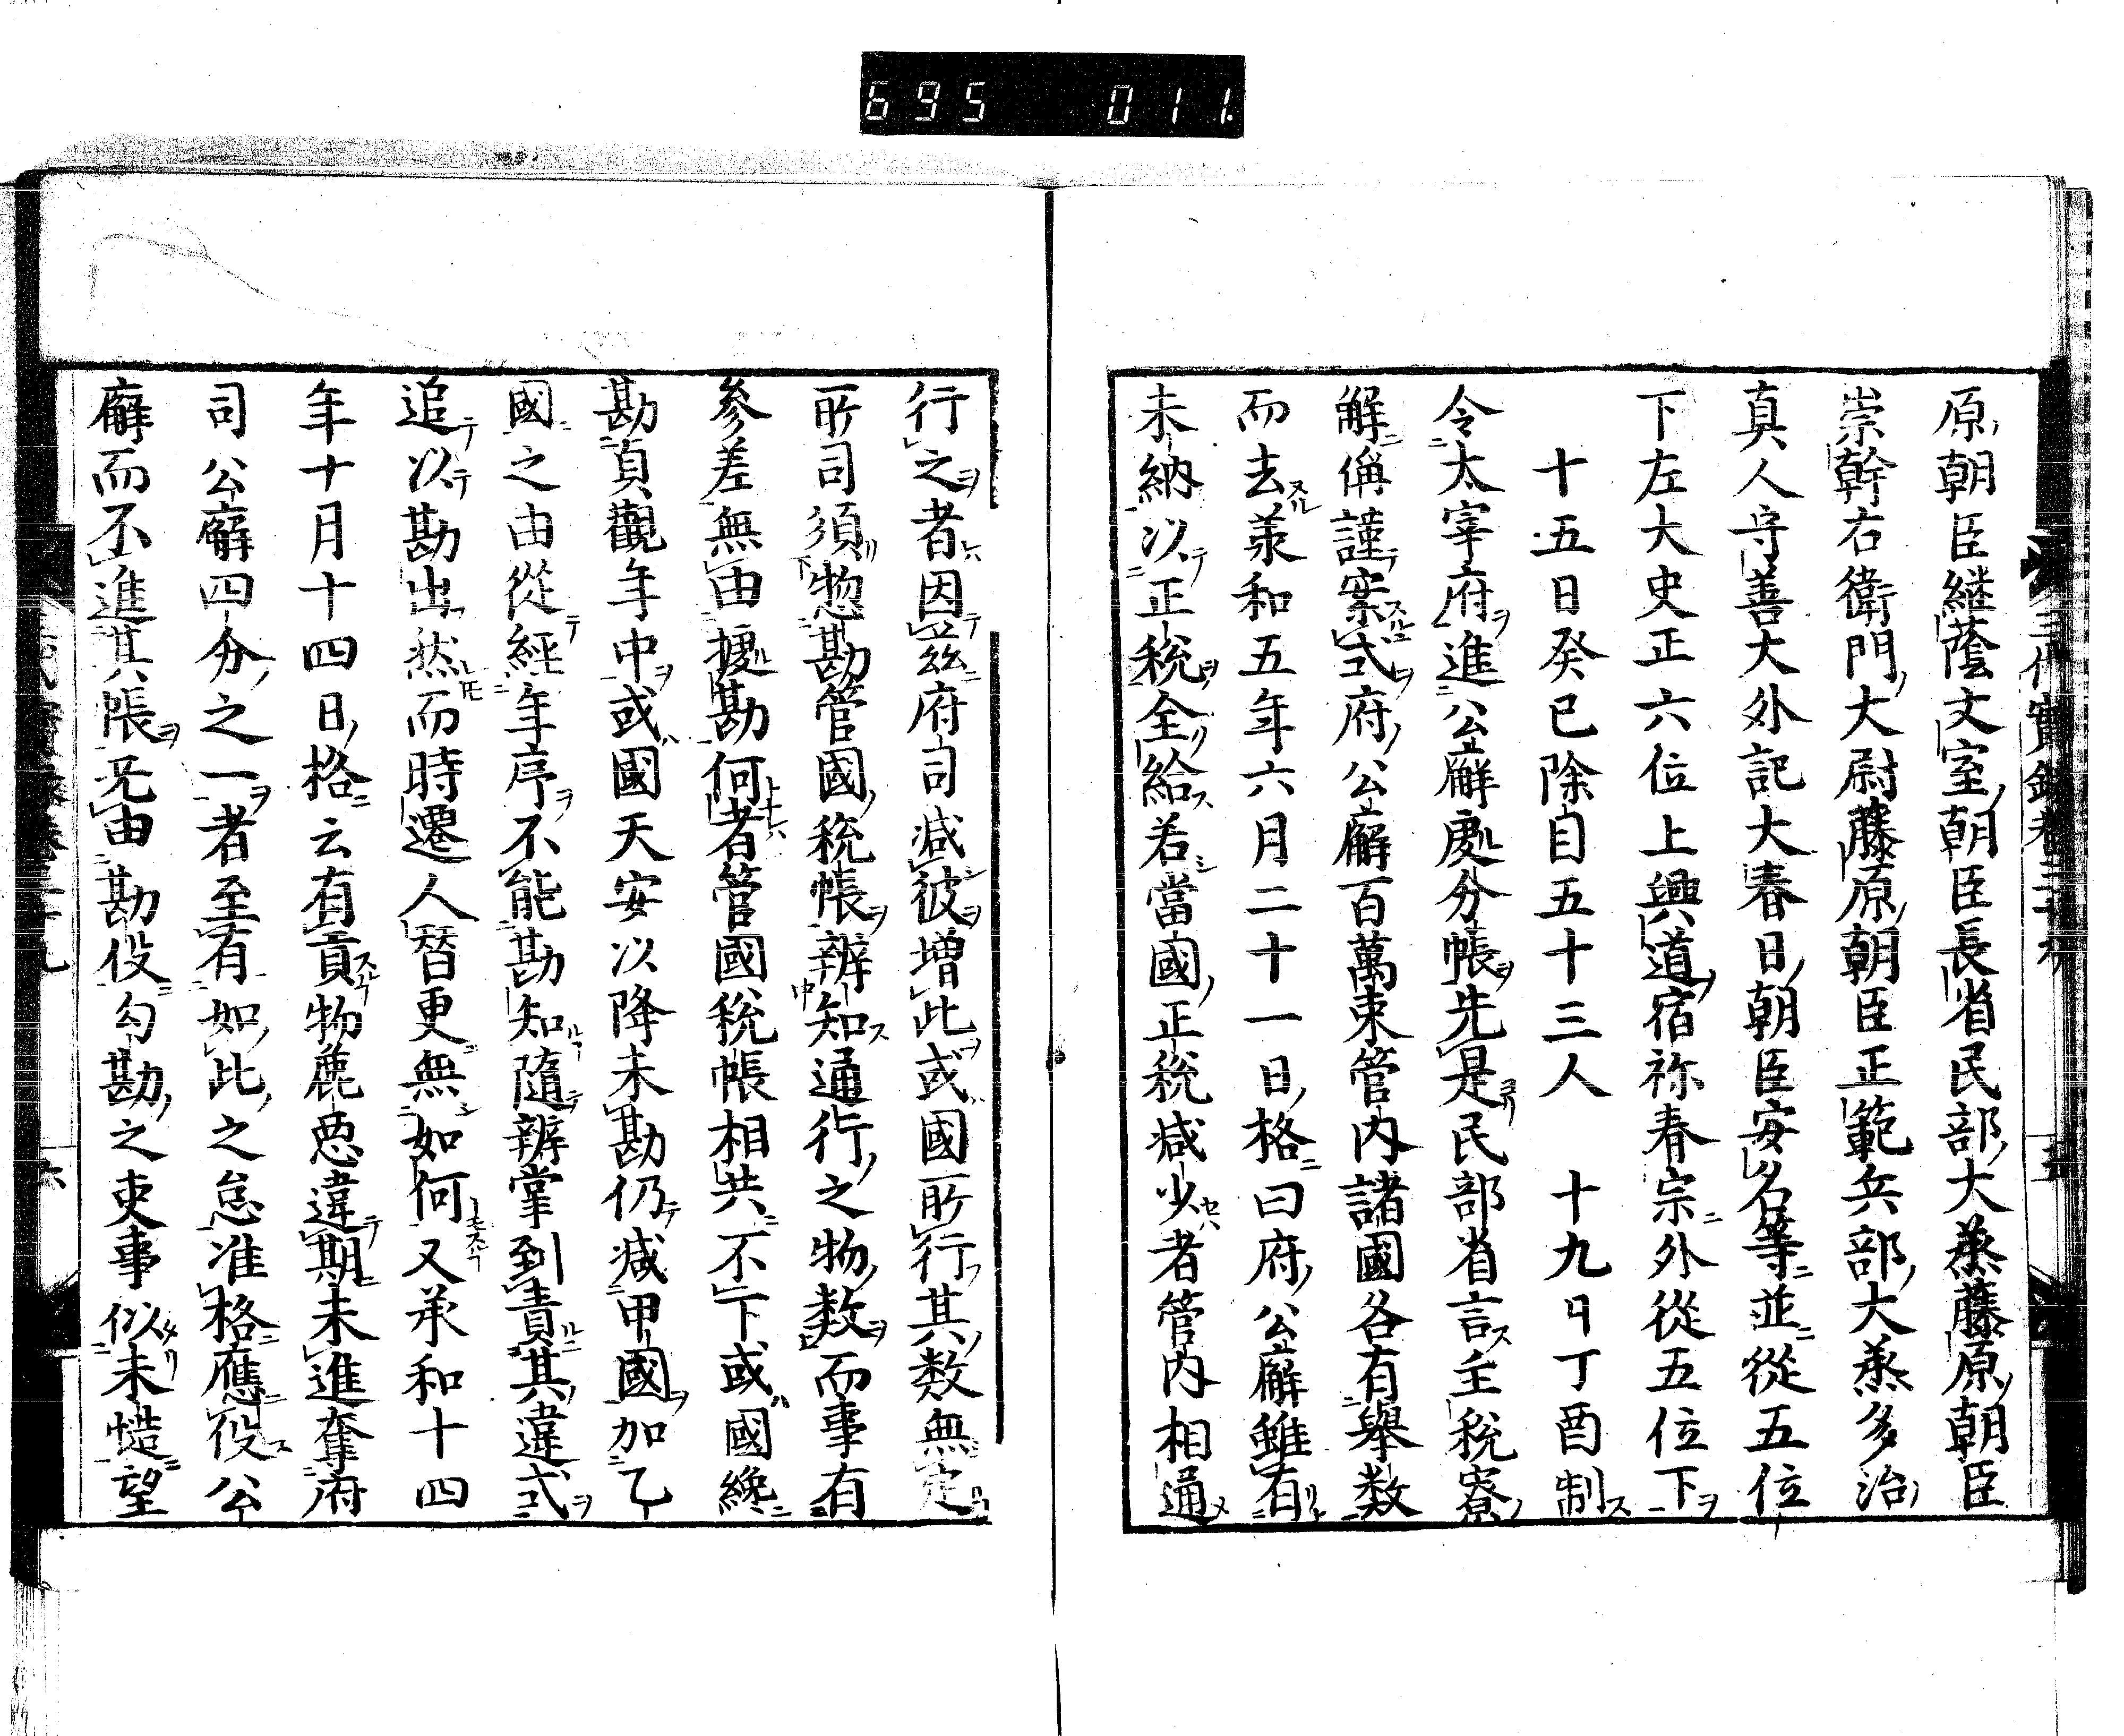 695 011
原朝臣継蔭文室朝臣長省民部大蒸藤原朝臣
崇幹右衛門大尉藤原朝臣正範兵部大蒸多治
真人守善大外記大春日朝臣安名等並從五位
下左大史正六位上興道宿祢春宗外從五位下
十五日癸巳除目五十三人　十九日丁酉制
令太宰府進公廨處分帳先是民部省言主税寮
解偁謹案式府公廨百萬束管内諸國各有舉数
而去羕和五年六月二十一日格曰府公廨雖有
未納以正税全給若當國正税减少者管内相通
行之者因茲府司减彼增此或國所行其数無定
所司須惣勘管國税帳辨知通行之物数而事有
參差無由據勘何者管國税帳相共不下或國纔
勘貞觀年中或國天安以降未勘仍减甲國加乙
國之由從經年序不能勘知隨辨掌到責其違式
追以勘出然而時遷人替更無如何又羕和十四
年十月十四日格云有貢物麁惡違期未進奪府
司公廨四分之一者至有如此之怠准格應役公
廨而不進其帳无由勘役勾勘之吏事似未愷望